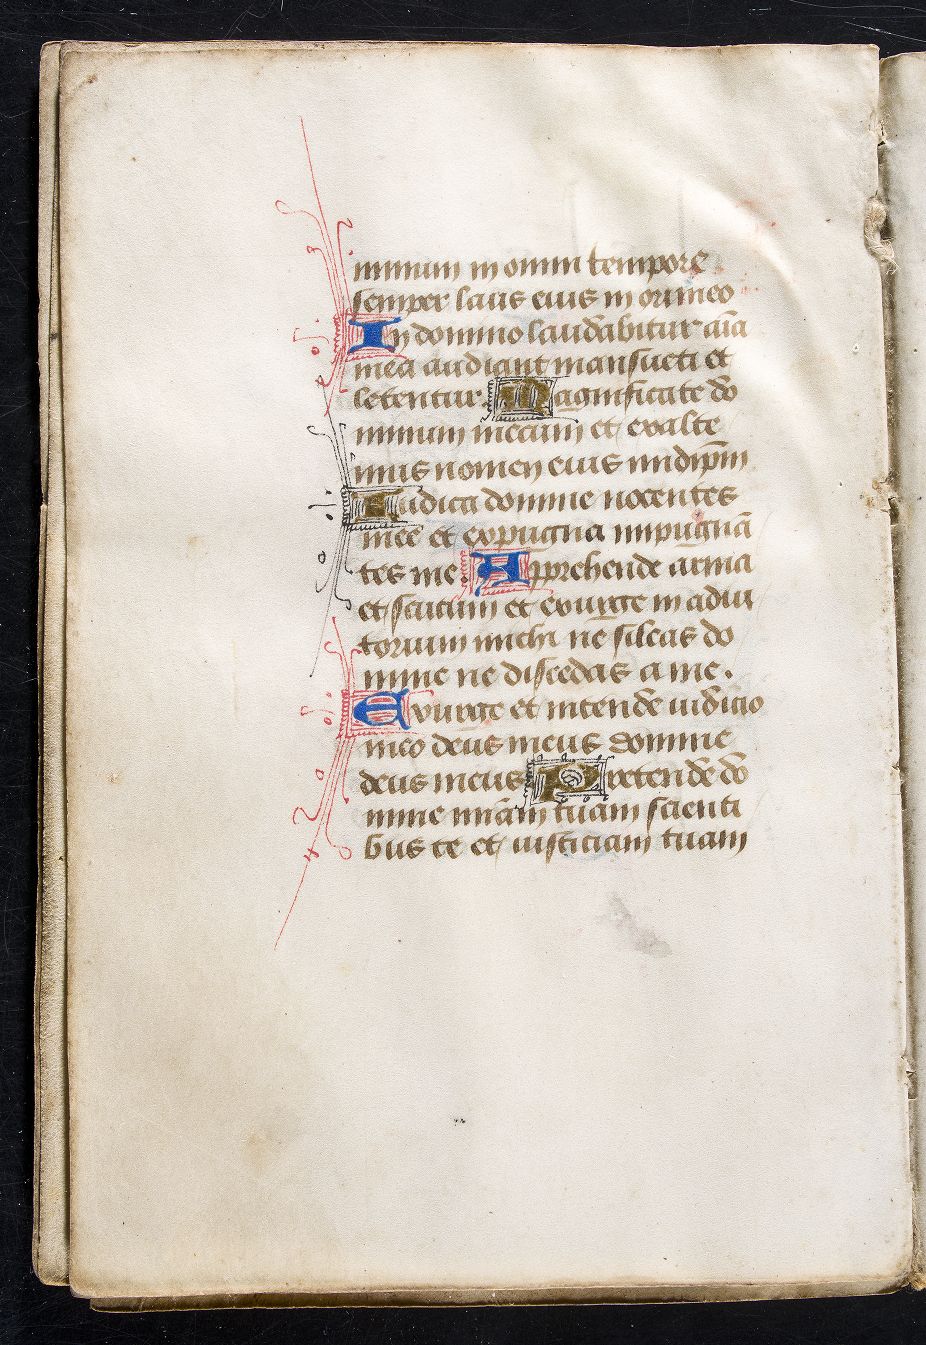 minum in omni tempore
semper laus eius in ori meo
In domino laudabitur aīa
mea audiant mansueti et
letentur. Magnificate do
minum mecum et exalte
mus nomen eius in idip̄m
Iudica domine nocentes
me et expugna impugnā
tes me. Apprehende arma
et scutum et exurge in adiu
torium michi ne sileas do
mine ne discedas a me.
Exurge et intende iudicio
meo deus meus domine
deus meus Pretende do
mine mīam tuam scienti
bus te et iusticiam tuam